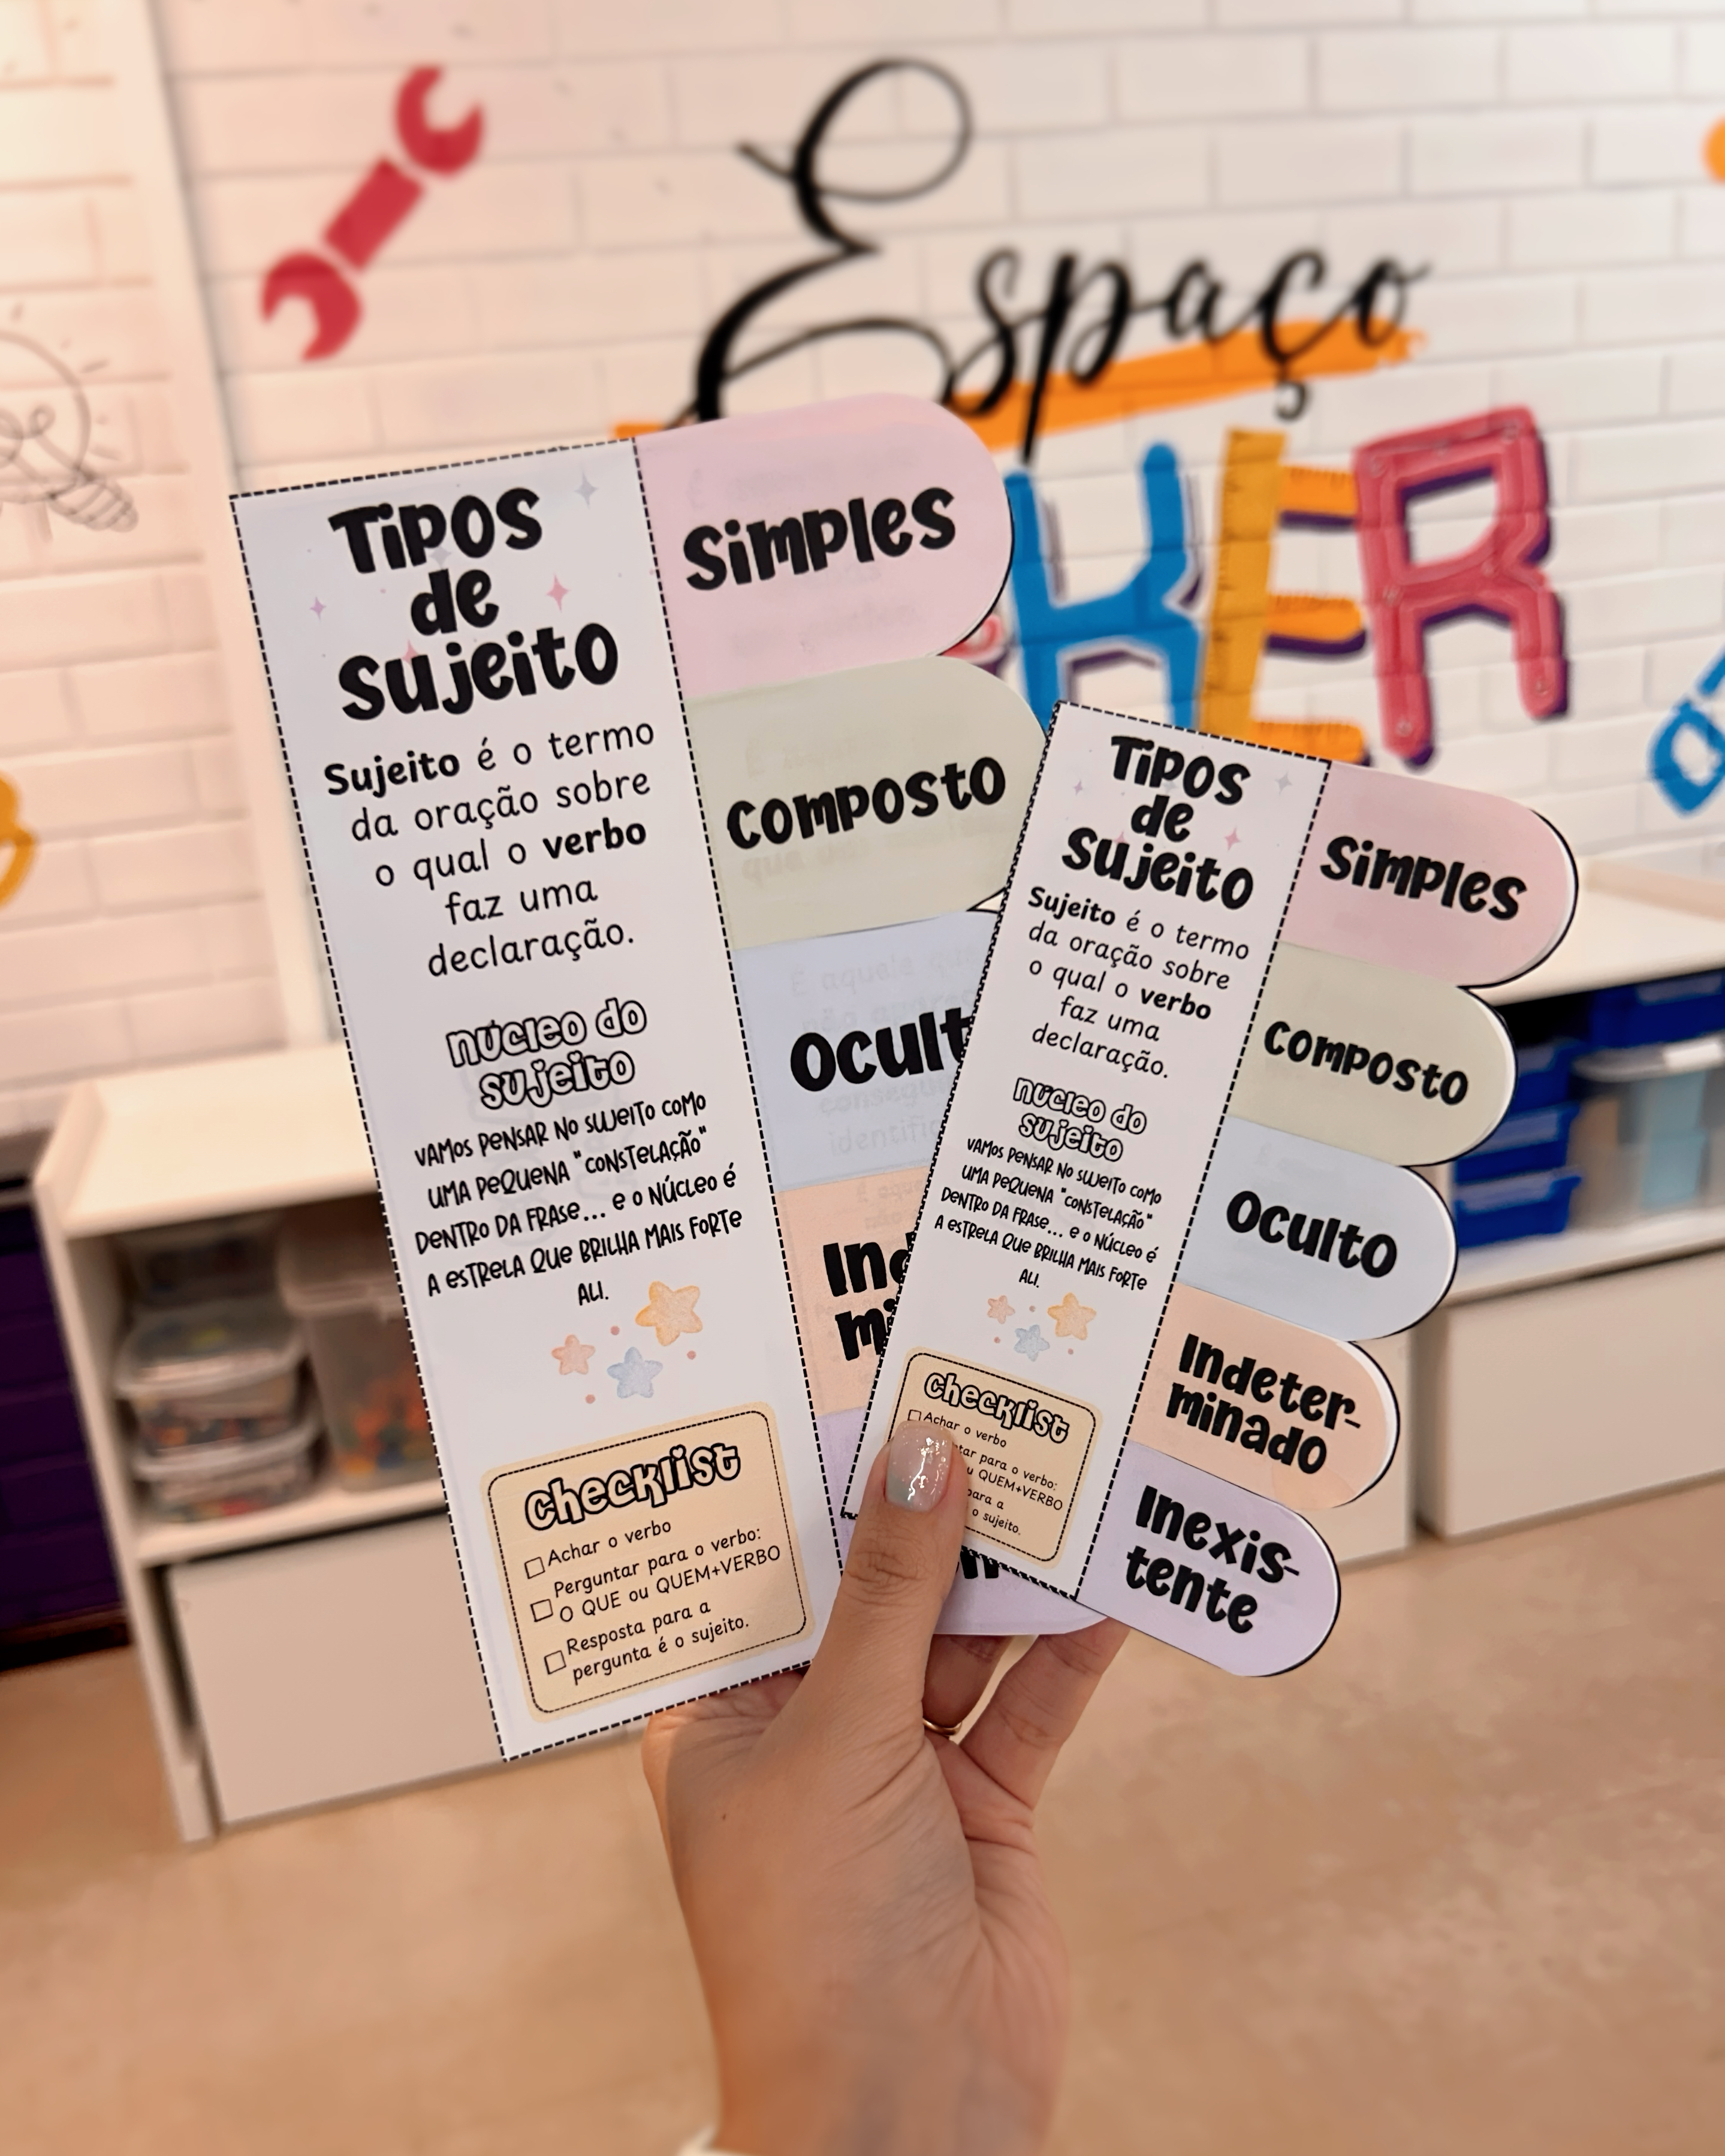 Espaço
KER
Tipos
de
Sujeito
Sujeito é o termo
da oração sobre
o qual o verbo
faz uma
declaração.
Núcleo do
sujeito
Vamos pensar no sujeito como
uma pequena "constelação"
dentro da frase... e o núcleo é
a estrela que brilha mais forte
ali.
Checklist
Achar o verbo
Perguntar para o verbo:
O QUE ou QUEM+VERBO
Resposta para a
pergunta é o sujeito.
Simples
Composto
Ocult
Tipos
de
Sujeito
Sujeito é o termo
da oração sobre
o qual o verbo
faz uma
declaração.
Núcleo do
sujeito
Vamos pensar no sujeito como
uma pequena "constelação"
dentro da frase... e o núcleo é
a estrela que brilha mais forte
ali.
Checklist
Achar o verbo
ntar para o verbo:
u QUEM+VERBO
para a
o sujeito.
Simples
Composto
Oculto
Indeter-
minado
Inexis-
tente